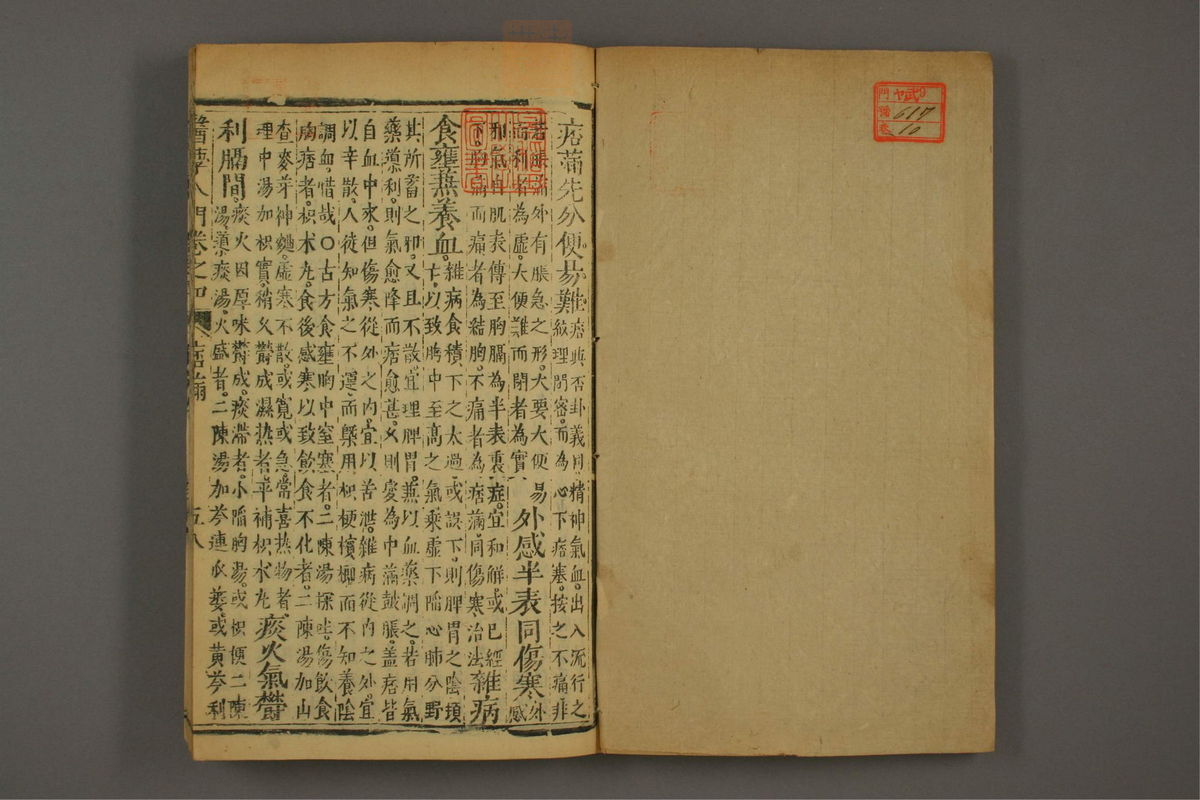 痞滿先分便易難
痞與否卦義同精神氣血出入流行之
紋理閉密而為心下痞塞按之不痛非
若脹滿外有脹急之形大要大便易
而利者為虛大便難而閉者為實
外感半表同傷寒
外
感
邪氣自肌表傳至胸膈為半表裏症宜和解或已經
下胸滿而痛者為結胸不痛者為痞滿同傷寒治法
雜病
食壅兼養血
雜病食積下之太過或誤下則脾胃之陰頓
亡以致胸中至高之氣乘虛下陷心肺分野
其所蓄之邪又且不散宜理脾胃兼以血藥調之若用氣
藥導利則氣愈降而痞愈甚久則變為中滿鼓脹蓋痞皆
自血中來但傷寒從外之內宜以苦泄雜病從內之外宜
以辛散人徒知氣之不運而槩用枳梗檳榔而不知養陰
調血惜哉○古方食壅胸中窒塞者二陳湯探吐傷飲食
胸痞者枳朮丸食後感寒以致飲食不化者二陳湯加山
查麥芽神麯虛寒不散或寬或急常喜熱物者
理中湯加枳實稍久欝成濕熱者平補枳朮丸
痰火氣欝
利膈間
痰火因厚味欝成痰滯者小陷胸湯或枳梗二陳
湯導痰湯火盛者二陳湯加芩連瓜蔞或黃芩利
醫學入門卷之四 痞滿 五八
門
號 617
卷 10